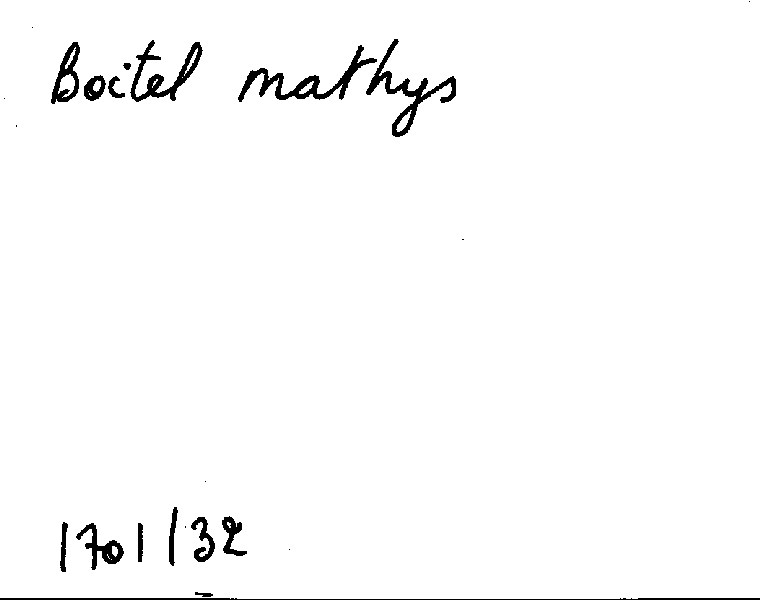 Boitel mathys
1701/32